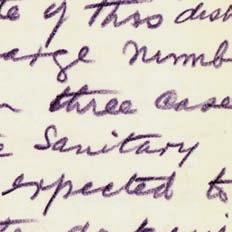 te of this dist
arge numb
three case
e Sanitary
expected to